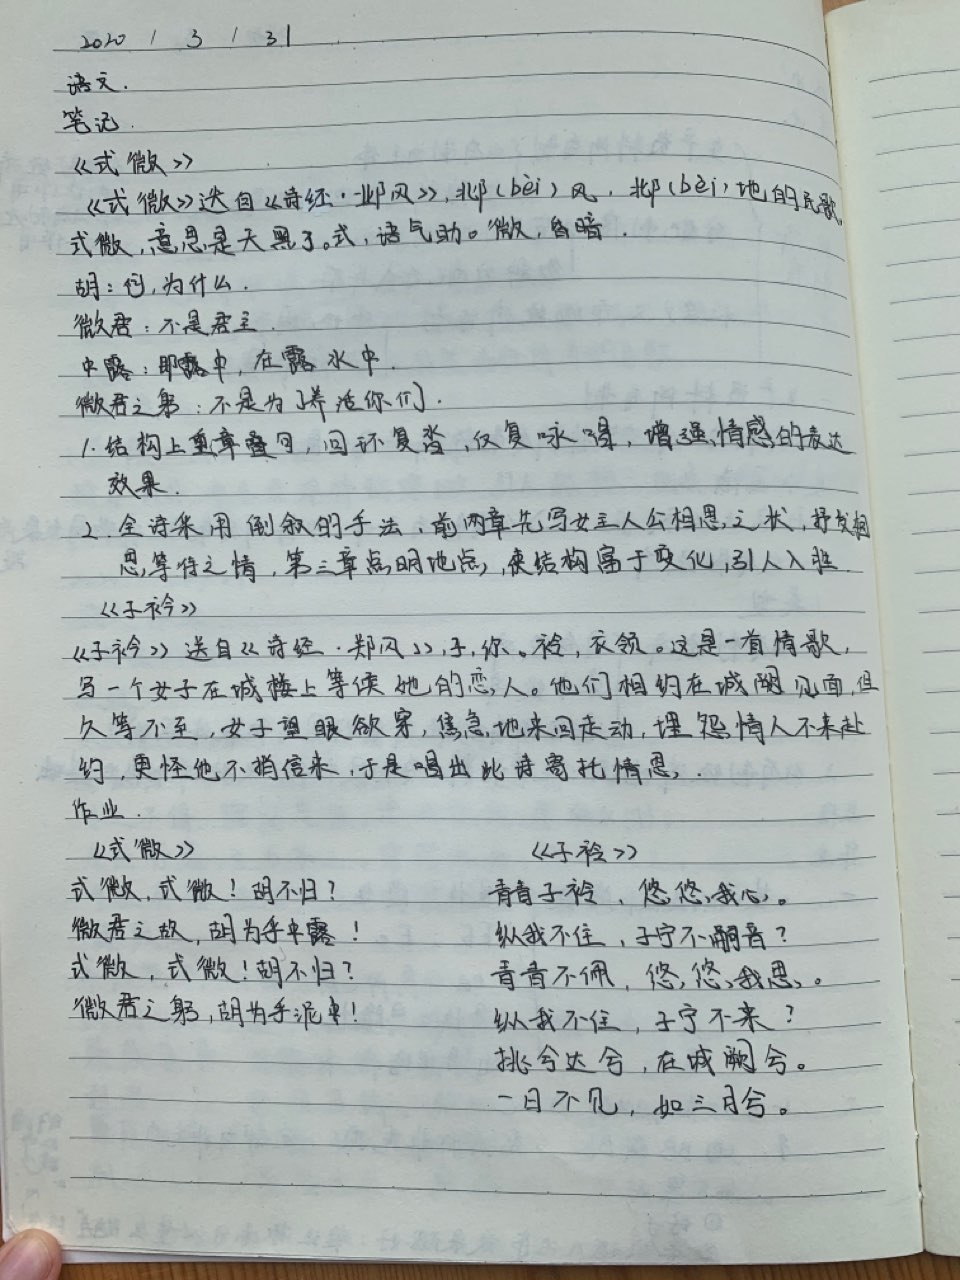 2020 / 3 / 31
语文.
笔记.
《式微》
《式微》选自《诗经·邶风》,邶(bèi)风,邶(bèi)地的民歌
式微,意思是天黑了。式,语气助。微,昏暗.
胡:何,为什么.
微君:不是君主.
中露:即露中,在露水中.
微君之躬:不是为了养活你们.
1.结构上重章叠句,回环复沓,反复咏唱,增强情感的表达
效果.
2.全诗采用倒叙的手法,前两章先写女主人公相思之状,抒发相
思等待之情,第三章点明地点,使结构富于变化,引人入胜.
《子衿》
《子衿》选自《诗经·郑风》,子,你。衿,衣领。这是一首情歌,
写一个女子在城楼上等侯她的恋人。他们相约在城阙见面,但
久等不至,女子望眼欲穿,焦急地来回走动,埋怨情人不来赴
约,更怪他不捎信来,于是唱出此诗寄托情思.
作业.
《式微》 《子衿》
式微,式微!胡不归? 青青子衿,悠悠我心。
微君之故,胡为乎中露! 纵我不住,子宁不嗣音?
式微,式微!胡不归? 青青不佩,悠悠我思。
微君之躬,胡为乎泥中! 纵我不住,子宁不来?
挑兮达兮,在城阙兮。
一日不见,如三月兮。